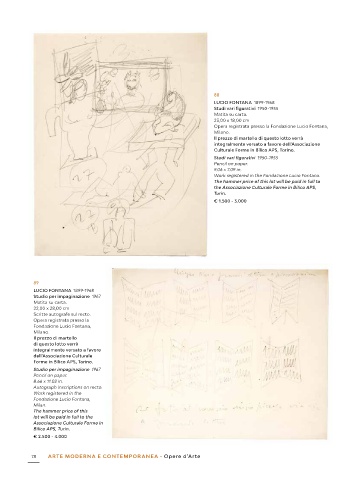 58
LUCIO FONTANA 1899-1968
Studi vari figurativi 1950-1955
Matita su carta.
Opera registrata presso la Fondazione Lucio Fontana,
Milano.
Il prezzo di martello di questo lotto verrà
integralmente versato a favore dell'Associazione
Culturale Forme in Bilico APS, Torino.
Studi vari figurativi 1950-1955
Pencil on paper.
Work registered in the Fondazione Lucio Fontana, Milan.
The hammer price of this lot will be paid in full to
the Associazione Culturale Forme in Bilico APS,
Turin.
€ 1.500 - 3.000
59
LUCIO FONTANA 1899-1968
Studio per impaginazione 1967
Matita su carta.
22,00 x 28,00 cm
Scritte autografe sul recto.
Opera registrata presso la
Fondazione Lucio Fontana,
Milano.
Il prezzo di martello
di questo lotto verrà
integralmente versato a favore
dell'Associazione Culturale
Forme in Bilico APS, Torino.
Studio per impaginazione 1967
Pencil on paper.
Autograph inscriptions on recto.
Work registered in the
Fondazione Lucio Fontana,
Milan.
The hammer price of this
lot will be paid in full to the
Associazione Culturale Forme in
Bilico APS, Turin.
€ 2.500 - 4.000
ARTE MODERNA E CONTEMPORANEA - Opere d'Arte